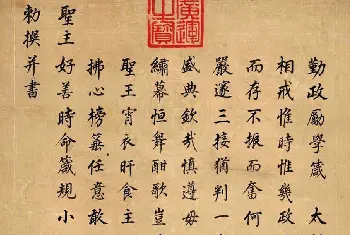 勤政勵學箴 太
相戒惟時惟幾政
而存不振而奮何
嚴邃三接猶判一
盛典欽哉慎遵毋
繡幕恒舞酣歌豈
聖王宵衣旰食主
拂心榜簊任意敢
聖主好善時命箴規小
勅撰并書